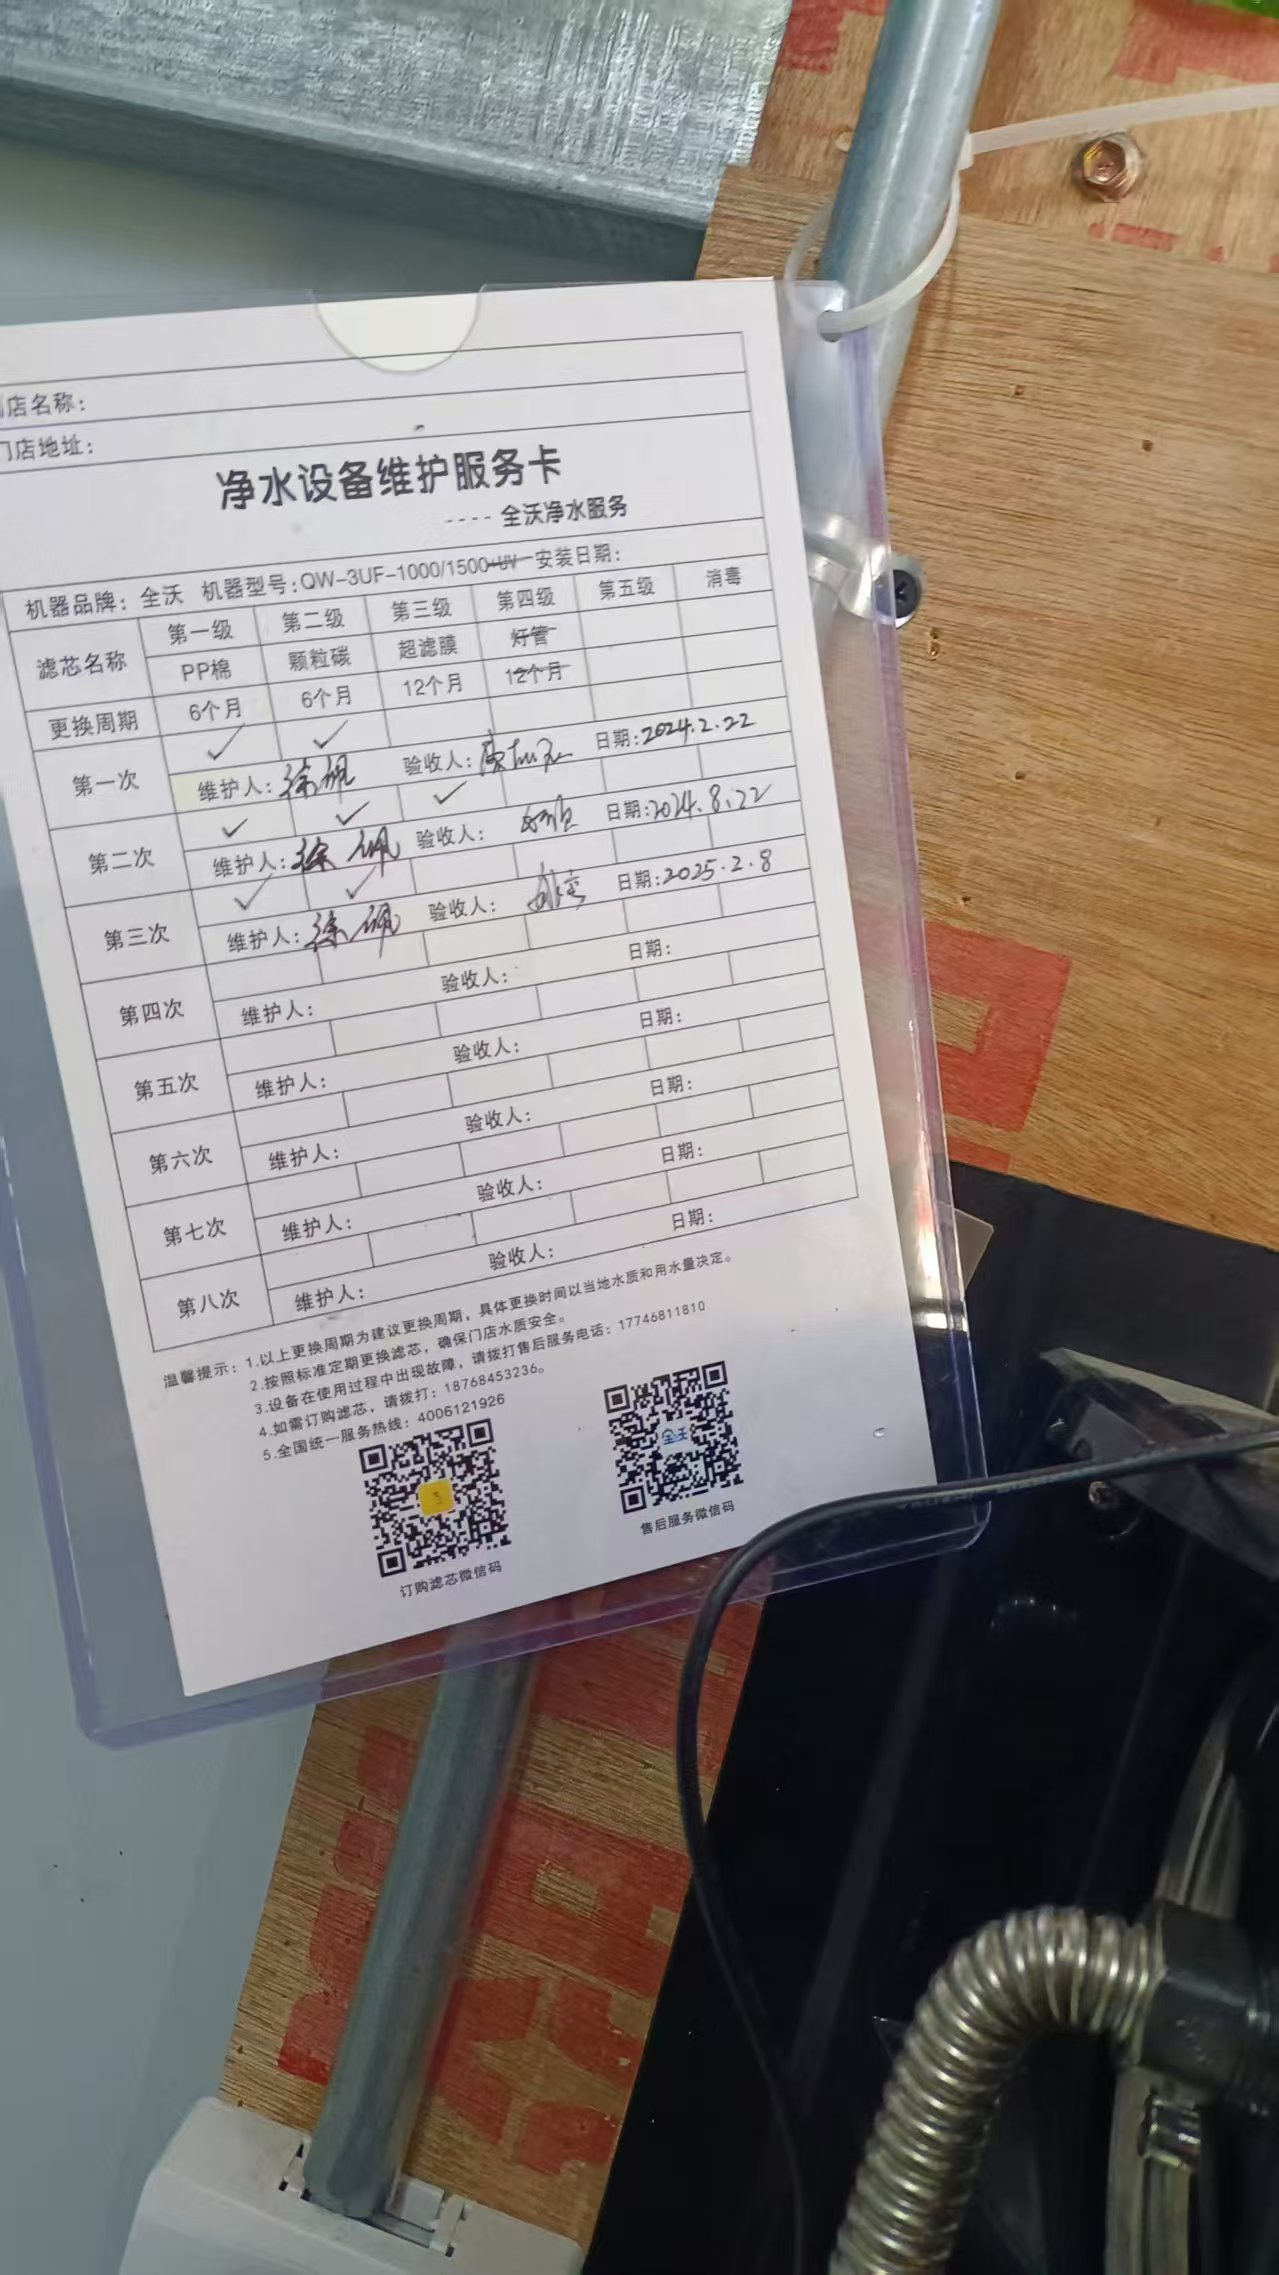 店名称：
门店地址：
净水设备维护服务卡
---- 全沃净水服务
机器品牌：全沃 机器型号：QW-3UF-1000/1500+UV 安装日期：
滤芯名称 第一级 第二级 第三级 第四级 第五级 消毒
PP棉 颗粒碳 超滤膜 灯管
更换周期 6个月 6个月 12个月 12个月
第一次 ✓ ✓
维护人：徐佩 验收人： 日期：2024.2.22
第二次 ✓ ✓ ✓
维护人：徐佩 验收人： 日期：2024.8.22
第三次 ✓ ✓
维护人：徐佩 验收人： 日期：2025.2.8
第四次
维护人： 验收人： 日期：
第五次
维护人： 验收人： 日期：
第六次
维护人： 验收人： 日期：
第七次
维护人： 验收人： 日期：
第八次
维护人： 验收人： 日期：
温馨提示：1.以上更换周期为建议更换周期，具体更换时间以当地水质和用水量决定。
2.按照标准定期更换滤芯，确保门店水质安全。
3.设备在使用过程中出现故障，请拨打售后服务电话：17746811810
4.如需订购滤芯，请拨打：18768453236。
5.全国统一服务热线：4006121926
全沃
订购滤芯微信码
售后服务微信码